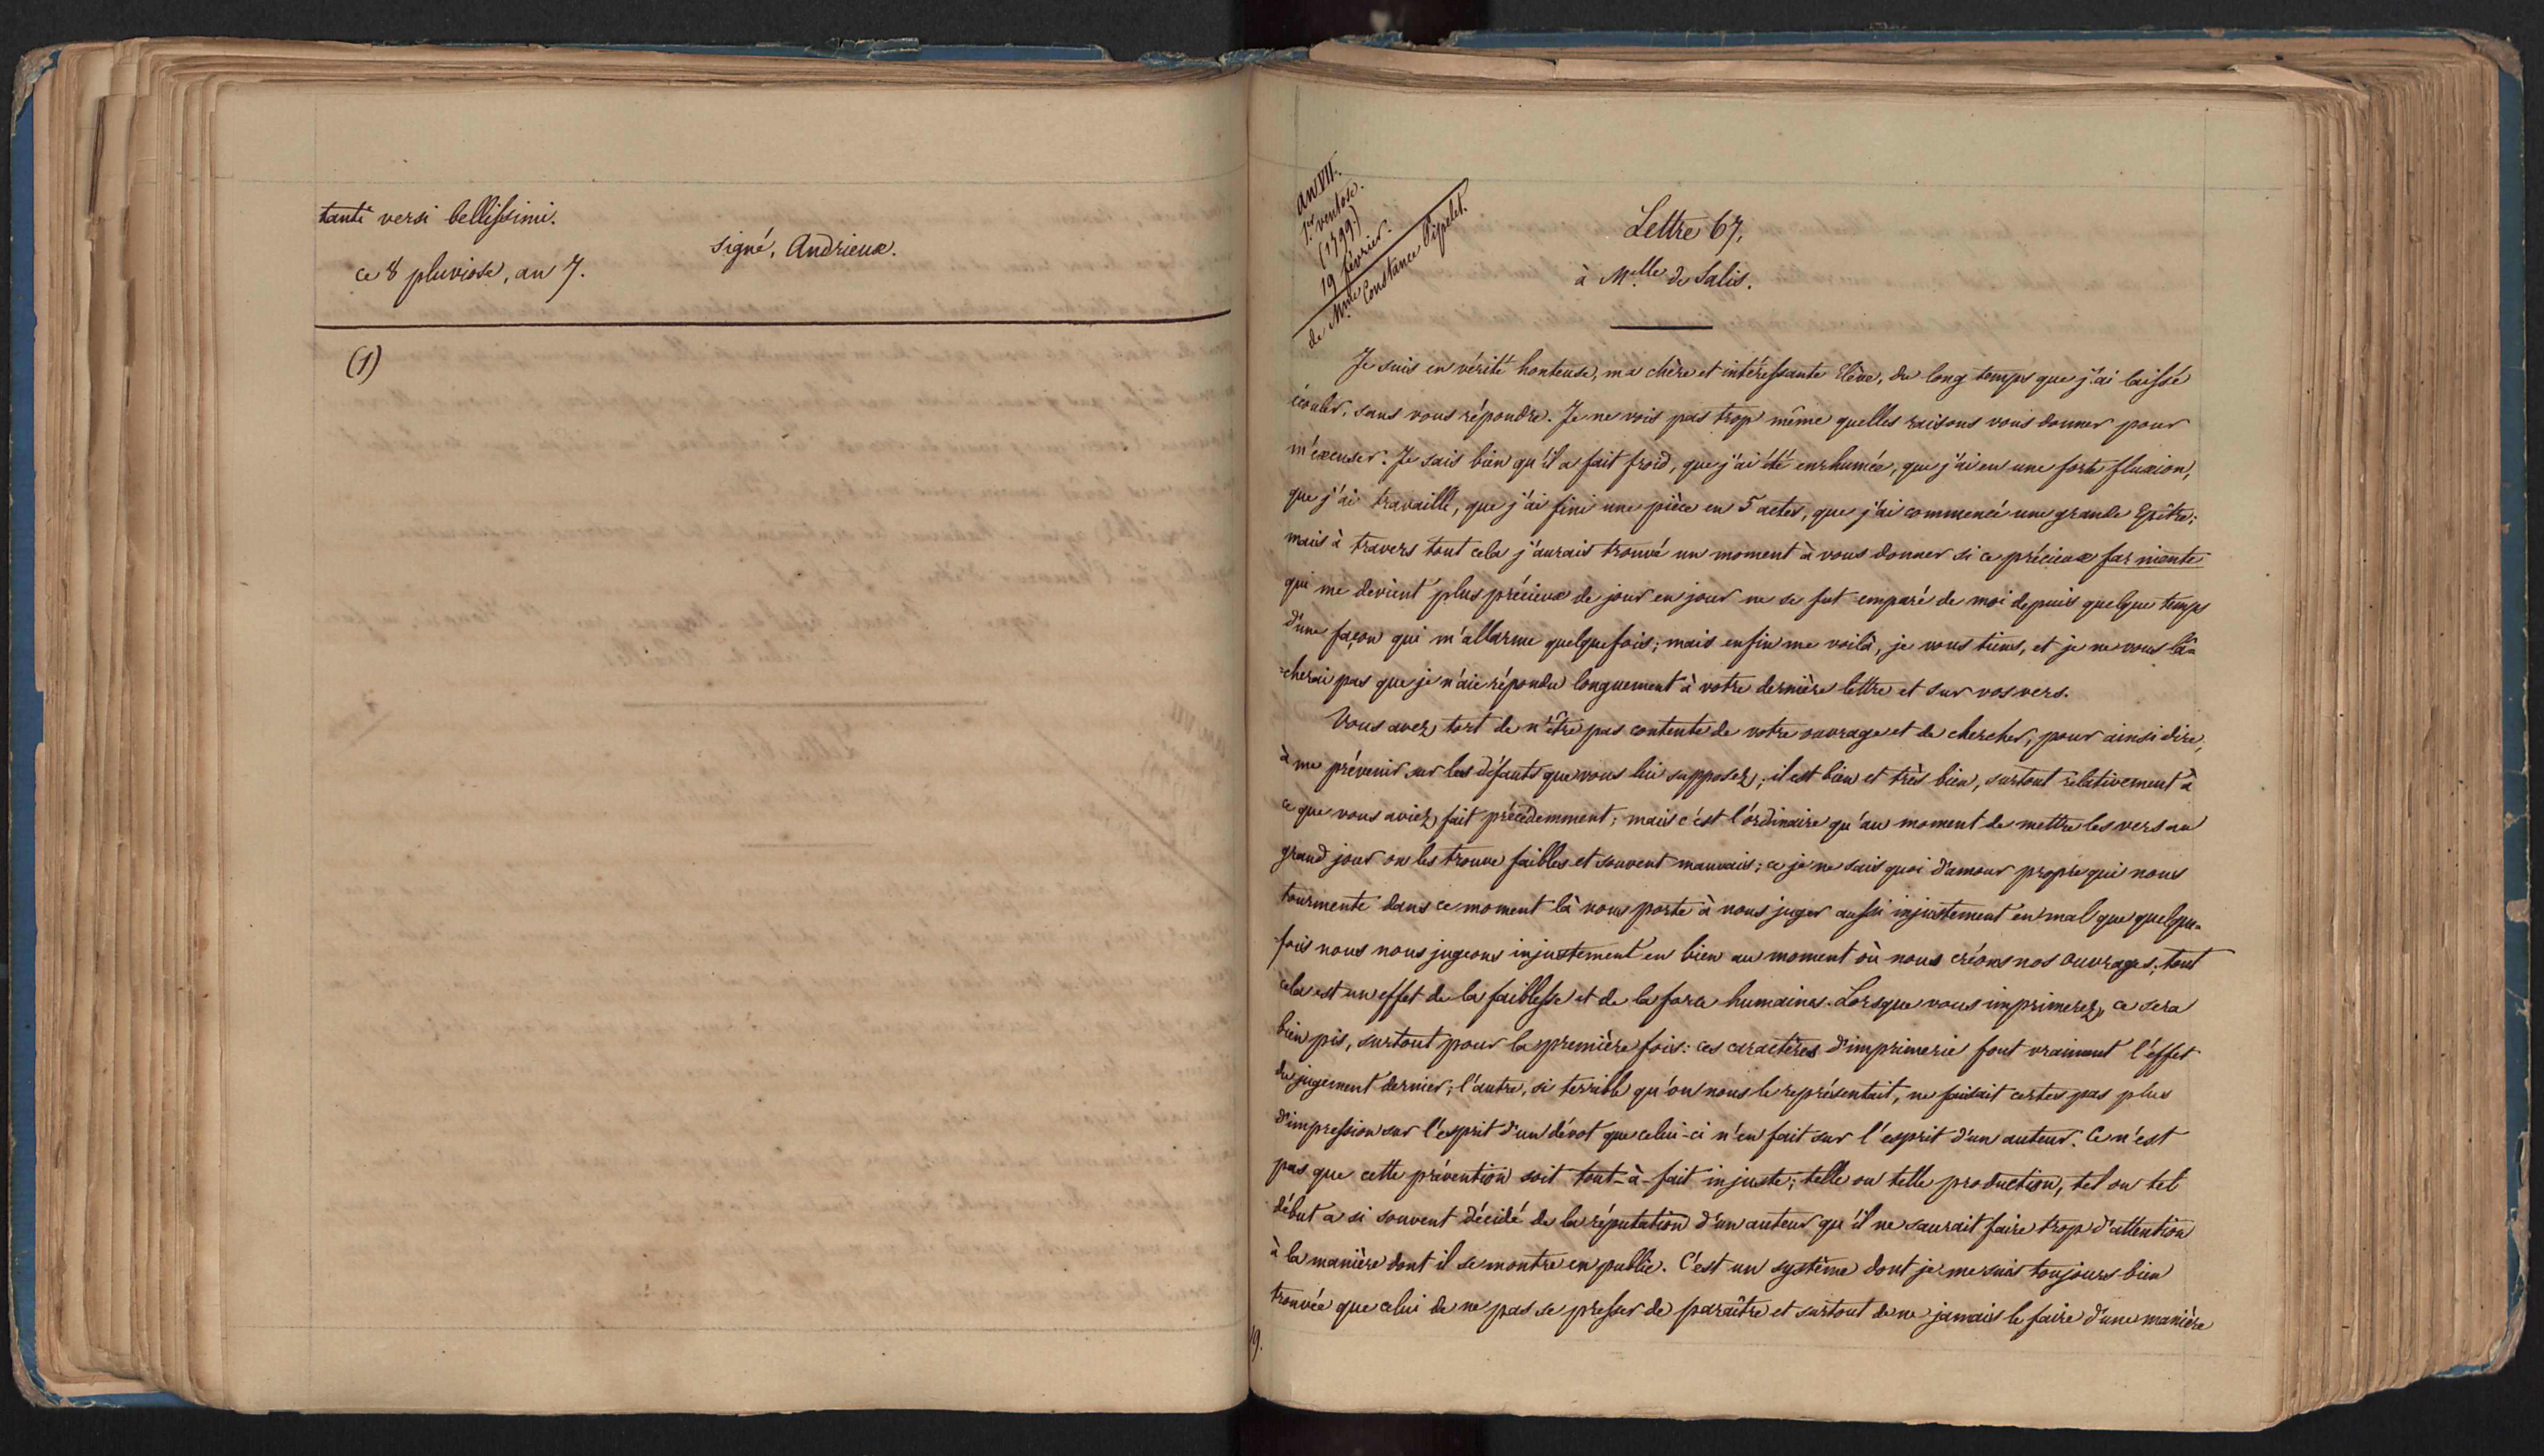 tanti versi bellissimi.
signé, Andrieux.
ce 8 pluviose, an 7.
(1)
an VII.
1er ventose.
(1799.)
19 février.
de Mme Constance Pipelet.
Lettre 67,
à Melle de Salis.
Je suis en vérité honteuse, ma chère et intéressante Elève, du long temps que j'ai laissé
écouler, sans vous répondre. Je ne vois pas trop même quelles raisons vous donner pour
m'excuser. Je sais bien qu'il a fait froid, que j'ai été enrhumée, que j'ai eu une forte fluxion,
que j'ai travaillé, que j'ai fini une pièce en 5 actes, que j'ai commencé une grande Epître;
mais à travers tout cela j'aurais trouvé un moment à vous donner si ce précieux far niente
qui me devient plus précieux de jour en jour ne se fut emparé de moi depuis quelque temps
d'une façon qui m'allarme quelquefois; mais enfin me voilà, je vous tiens, et je ne vous lâ-
-cherai pas que je n'aie répondu longuement à votre dernière lettre et sur vos vers.
Vous avez tort de n'être pas contente de votre ouvrage et de chercher, pour ainsi dire,
à me prévenir sur les défauts que vous lui supposez; il est bien et très bien, surtout relativement à
ce que vous aviez fait précédemment; mais c'est l'ordinaire qu'au moment de mettre les vers au
grand jour on les trouve faibles et souvent mauvais; ce je ne sais quoi d'amour propre qui nous
tourmente dans ce moment là nous porte à nous juger aussi injustement en mal que quelque-
-fois nous nous jugeons injustement en bien au moment où nous créons nos ouvrages; tout
cela est un effet de la faiblesse et de la force humaines. Lorsque vous imprimerez, ce sera
bien pis, surtout pour la première fois: ces caractères d'imprimerie font vraiment l'effet
du jugement dernier; l'autre, si terrible qu'on nous le représentait, ne faisait certes pas plus
d'impression sur l'esprit d'un dévot que celui-ci n'en fait sur l'esprit d'un auteur. Ce n'est
pas que cette prévention soit tout-à-fait injuste; telle ou telle production, tel ou tel
début a si souvent décidé de la réputation d'un auteur qu'il ne saurait faire trop d'attention
à la manière dont il se montre en public. C'est un système dont je me suis toujours bien
trouvée que celui de ne pas se presser de paraître et surtout de ne jamais le faire d'une manière